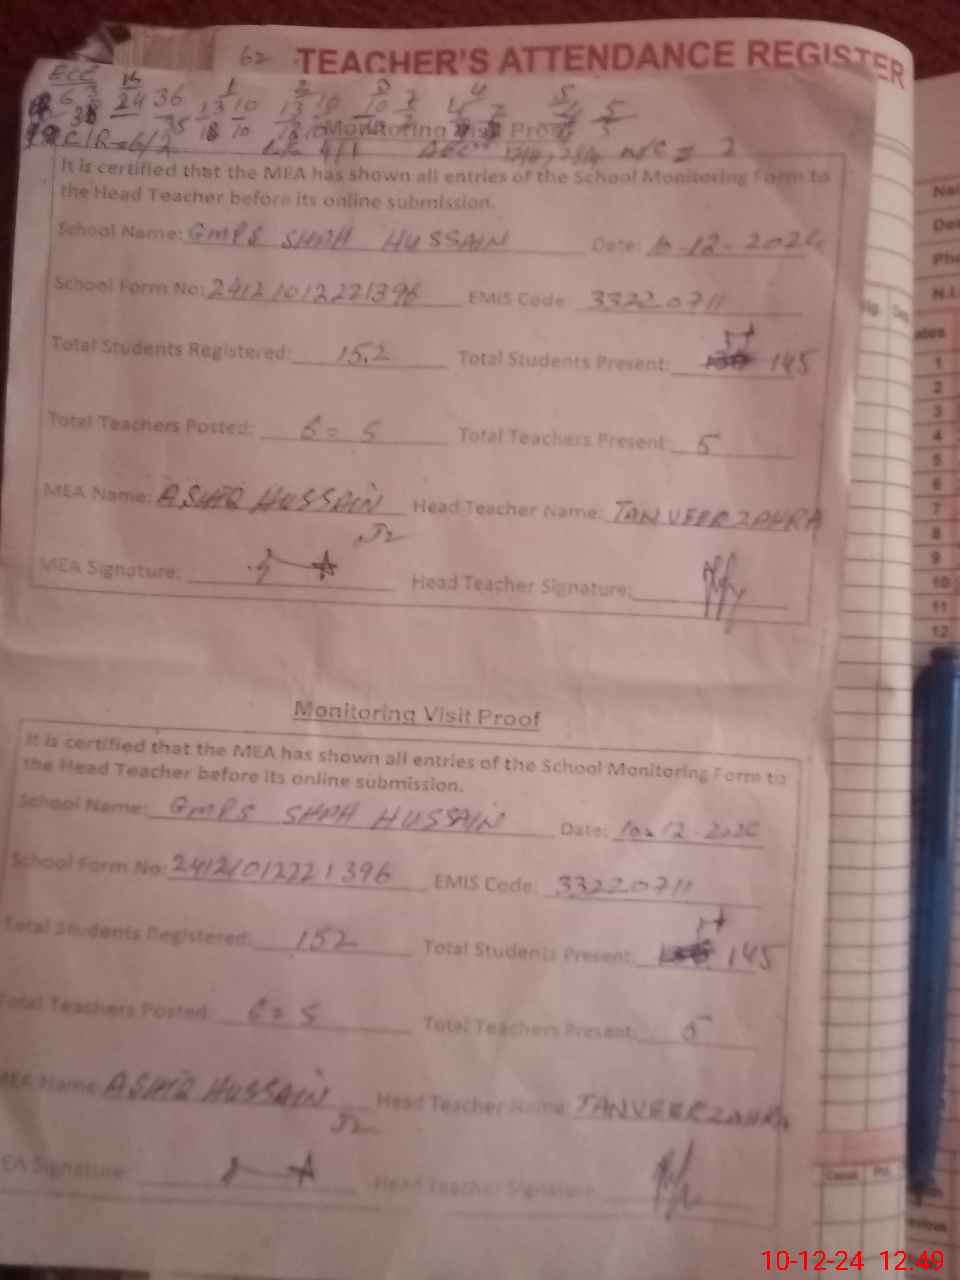 62 TEACHER'S ATTENDANCE REGISTER
ECC K 1 2 3 4 5
24 36 13 10 13 10 10
35 18 10
C/R=6/2 4/1
Monitoring Visit Proof
It is certified that the MEA has shown all entries of the School Monitoring Form to
the Head Teacher before its online submission.
School Name: GMPS SHAH HUSSAIN Date: 10-12-2024
School Form No: 241210122221396 EMIS Code 33220711
Total Students Registered: 152 Total Students Present: 145
Total Teachers Posted: 6 = 5 Total Teachers Present: 5
MEA Name: ASHIQ HUSSAIN Head Teacher Name: TANVEER ZAHRA
MEA Signature: Head Teacher Signature:
Monitoring Visit Proof
It is certified that the MEA has shown all entries of the School Monitoring Form to
the Head Teacher before its online submission.
School Name: GMPS SHAH HUSSAIN Date: 10-12-2024
School Form No: 241210122221396 EMIS Code: 33220711
Total Students Registered: 152 Total Students Present: 145
Total Teachers Posted: 6 = 5 Total Teachers Present: 5
MEA Name: ASHIQ HUSSAIN Head Teacher Name: TANVEER ZAHRA
EA Signature: Head Teacher Signature:
N.I.
1
2
3
4
5
6
7
8
9
10
11
12
10-12-24 12:49